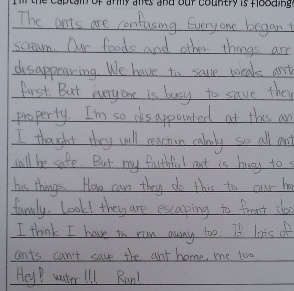 I'm the captain of army ants and our country is flooding!
The ants are confusing Everyone began t
scream. Our foods and other things are
disappearing. We have to save weak ant
first. But everyone is busy to save their
property I'm so disappointed at this an
I thought they will reaction calmly so all ant
will be safe. But my faithful ant is busy to s
his things. How can they do this to our ho
family. Look! they are escaping to front doo
I think I have to run away too. If lots of
ants can't save the ant home, me too
Hey! water!!! Run!